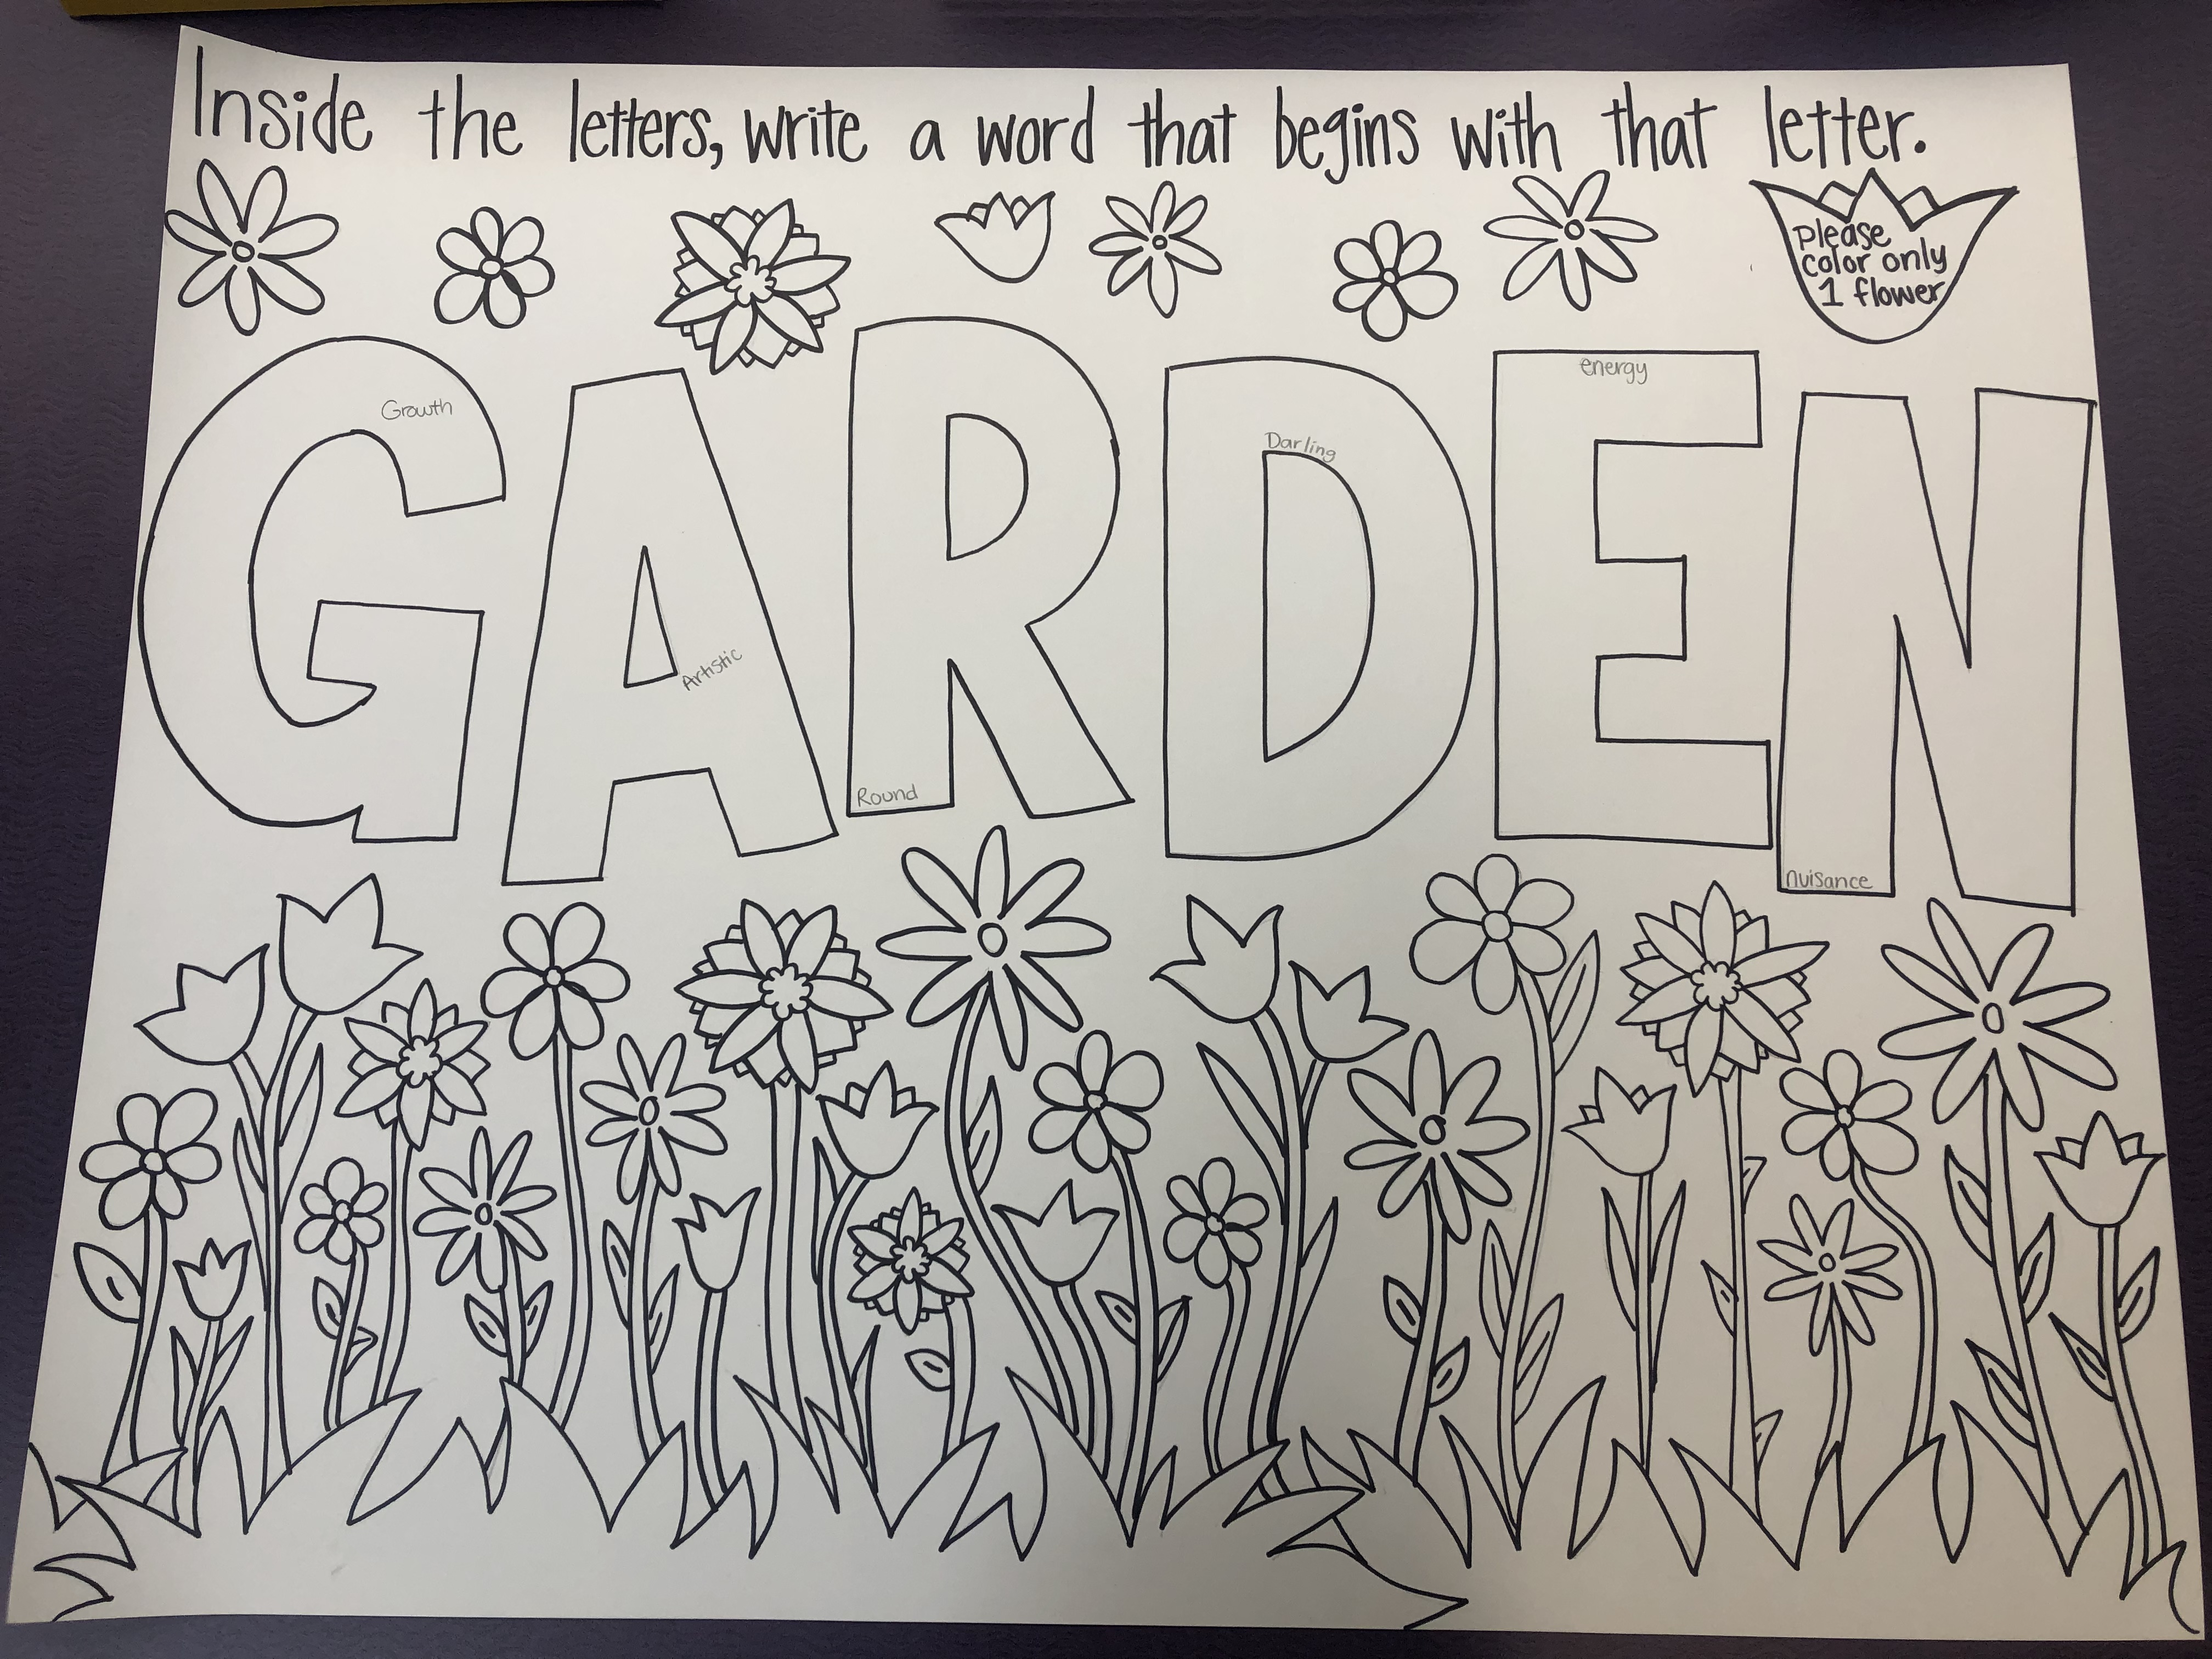 Inside the letters, write a word that begins with that letter.
Please
color only
1 flower
GARDEN
Growth
Artistic
Round
Darling
energy
nuisance